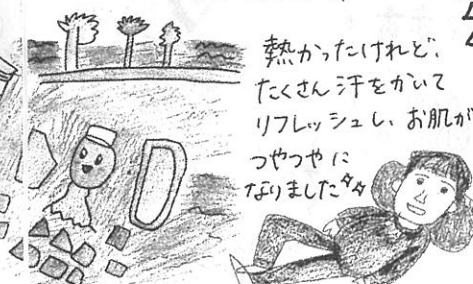 熱かったけれど、
たくさん汗をかいて
リフレッシュし、お肌が
つやつやに
なりました